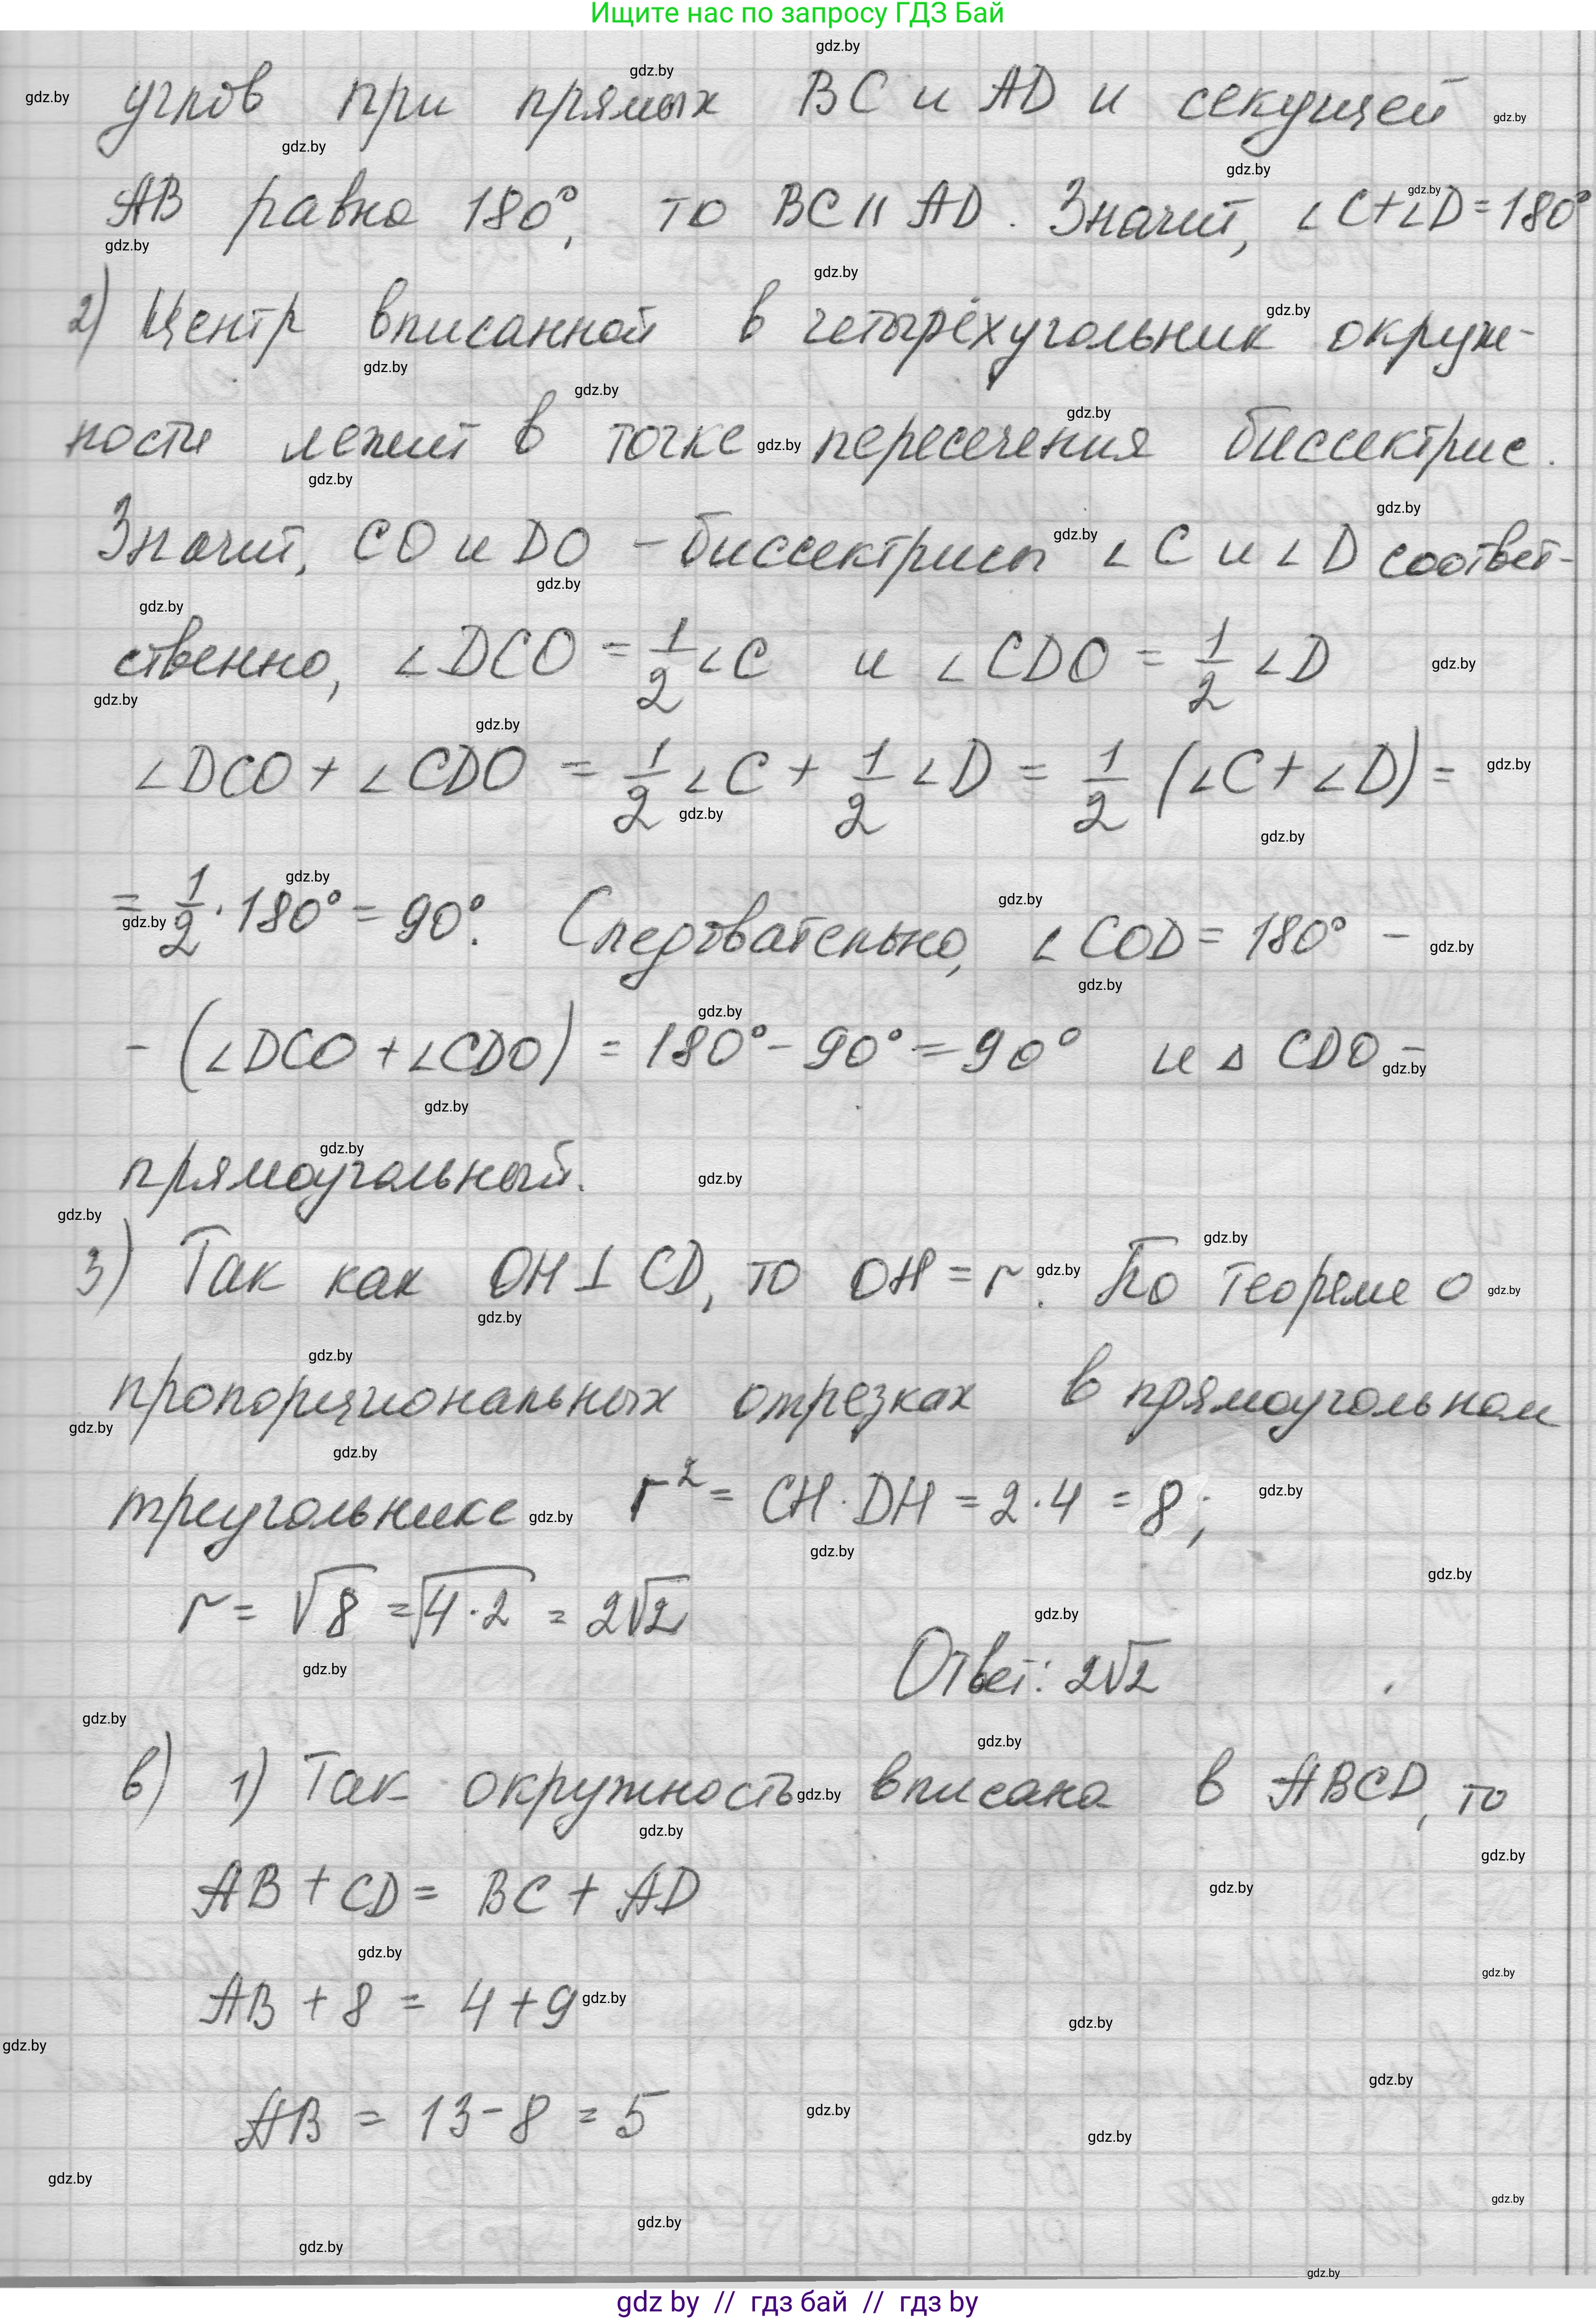 Ищите нас по запросу ГДЗ Бай
углов при прямых BC и AD и секущей
AB равна 180°, то BC || AD. Значит, ∠C+∠D=180°
2) Центр вписанной в четырёхугольник окруж-
ности лежит в точке пересечения биссектрис.
Значит, CO и DO - биссектрисы ∠C и ∠D соответ-
ственно, ∠DCO = 1/2 ∠C и ∠CDO = 1/2 ∠D
∠DCO + ∠CDO = 1/2 ∠C + 1/2 ∠D = 1/2 (∠C + ∠D) =
= 1/2 · 180° = 90°. Следовательно, ∠COD = 180° -
- (∠DCO + ∠CDO) = 180° - 90° = 90° и △ CDO -
прямоугольный.
3) Так как OH ⊥ CD, то OH = r. По теореме о
пропорциональных отрезках в прямоугольном
треугольнике r² = CH · DH = 2 · 4 = 8;
r = √8 = √4·2 = 2√2
Ответ: 2√2
в) 1) Так окружность вписана в ABCD, то
AB + CD = BC + AD
AB + 8 = 4 + 9
AB = 13 - 8 = 5
gdz by // гдз бай // гдз by